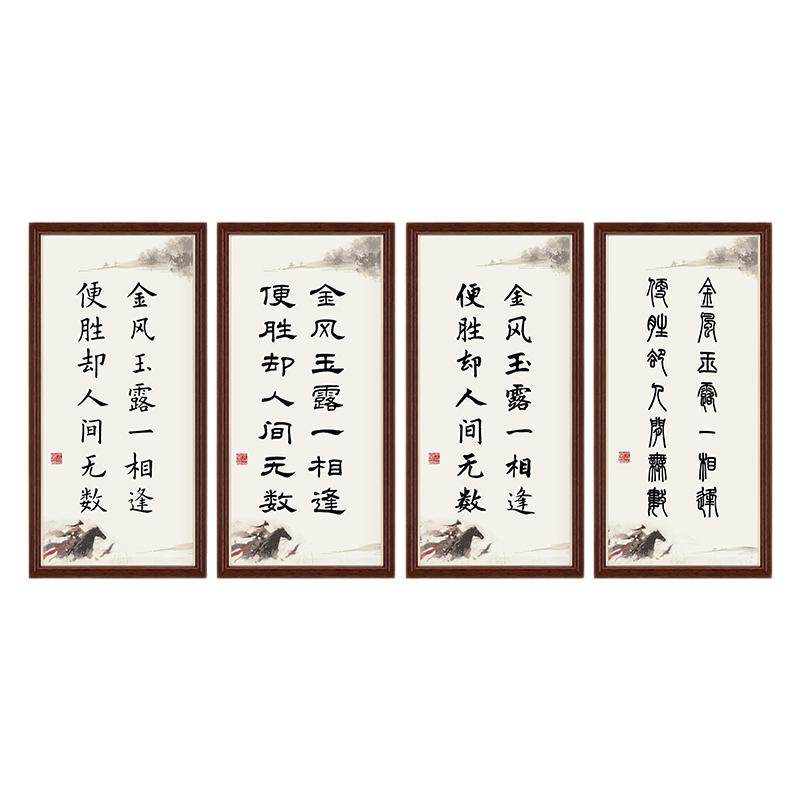 金风玉露一相逢
便胜却人间无数
金风玉露一相逢
便胜却人间无数
金风玉露一相逢
便胜却人间无数
金風玉露一相逢
便勝卻人間無數